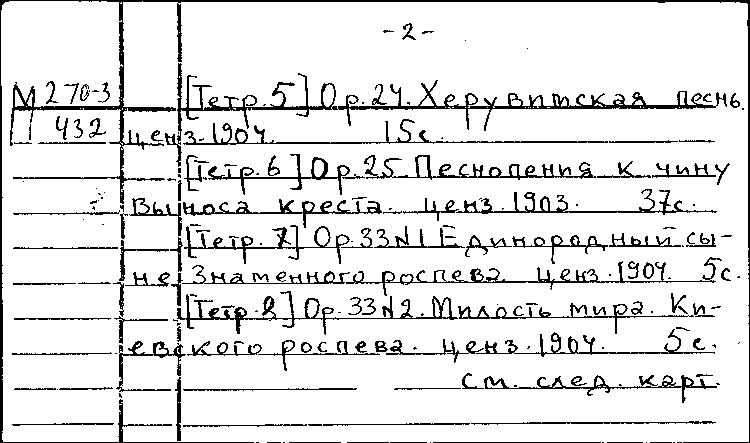 -2-
М 270-3 [Тетр.5] Ор.24. Херувимская песнь.
П 432 ценз.1904. 15с.
[Тетр.6] Ор.25 Песнопения к чину
выноса креста. ценз.1903. 37с.
[Тетр.7] Ор.33№1 Единородный сы-
не. Знаменного роспева ценз.1904. 5с.
[Тетр.8] Ор.33№2. Милость мира. Ки-
евского роспева. ценз.1904. 5с.
см. след. карт.